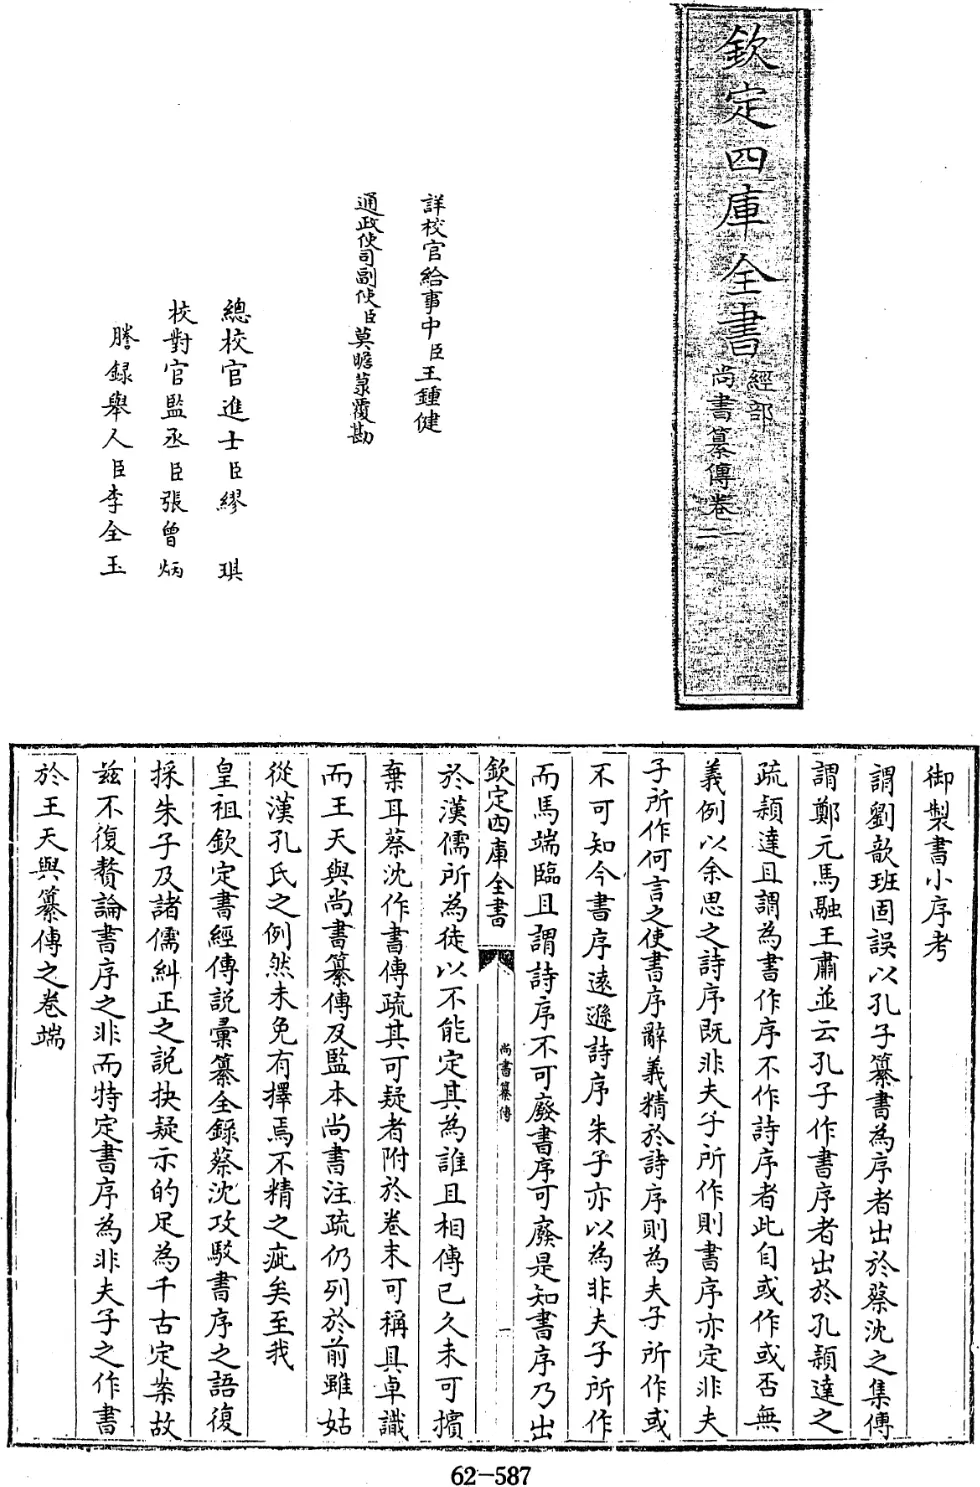 欽定四庫全書
經部
尚書纂傳卷一
二
詳校官給事中臣王鍾健
通政使司副使臣莫瞻菉覆勘
總校官進士臣繆琪
校對官監丞臣張曾炳
謄録舉人臣李全玉
御製書小序考
謂劉歆班固誤以孔子纂書為序者出於蔡沈之集傳
謂鄭元馬融王肅並云孔子作書序者出於孔穎達之
疏穎達且謂為書作序不作詩序者此自或作或否無
義例以余思之詩序既非夫子所作則書序亦定非夫
子所作何言之使書序辭義精於詩序則為夫子所作或
不可知今書序遠遜詩序朱子亦以為非夫子所作
而馬端臨且謂詩序不可廢書序可廢是知書序乃出
欽定四庫全書
尚書纂傳
一
於漢儒所為徒以不能定其為誰且相傳已久未可擯
棄耳蔡沈作書傳疏其可疑者附於卷末可稱具卓識
而王天與尚書纂傳及監本尚書注疏仍列於前雖姑
從漢孔氏之例然未免有擇焉不精之疵矣至我
皇祖欽定書經傳説彙纂全錄蔡沈攻駁書序之語復
採朱子及諸儒糾正之説抉疑示的足為千古定案故
兹不復贅論書序之非而特定書序為非夫子之作書
於王天與纂傳之卷端
62-587